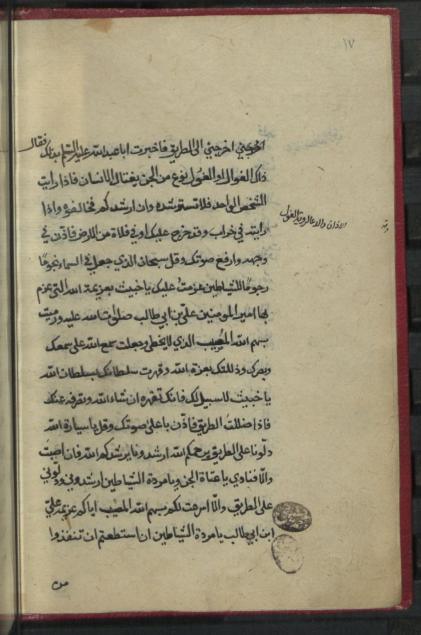 ١٧
اخرجني اخرجني الى الطريق فاخبرت ابا عبد الله عليه السلم بذلك فقال
ذاك الغوال او الغول نوع من الجن يغتال الانسان فاذا رايت
الشخص الواحد فلا تسترشده وان ارشدكم فخالفوه واذا
رايته في خراب وقد خرج عليك او في فلاة من الارض فاذن في
وجهه وارفع صوتك وقل سبحان الذي جعل في السماء نجوما
رجوما للشياطين عزمت عليك يا خبيث بعزيمة الله التي عزم
بها امير المومنين علي بن ابي طالب صلوات الله عليه ورميت
بسهم الله المصيب الذي لا يخطي وجعلت سمع الله على سمعك
وبصرك وذللتك بعزة الله وقهرت سلطانك بسلطان الله
يا خبيث لا سبيل لك فانك تقهره ان شاء الله وتصرفه عنك
فاذا ضللت الطريق فاذن باعلى صوتك وقل يا سيارة الله
دلونا على الطريق يرحمكم الله ارشدونا يرشدكم الله فان اصبت
والا فنادي يا عتاة الجن ويا مردة الشياطين ارشدوني ودلوني
على الطريق والا اسرعت لكم بسهم الله المصيب اياكم عزيمة علي
ابن ابي طالب يا مردة الشياطين ان استطعتم ان تنفذوا
من
الاذان والدعا لرؤية الغول